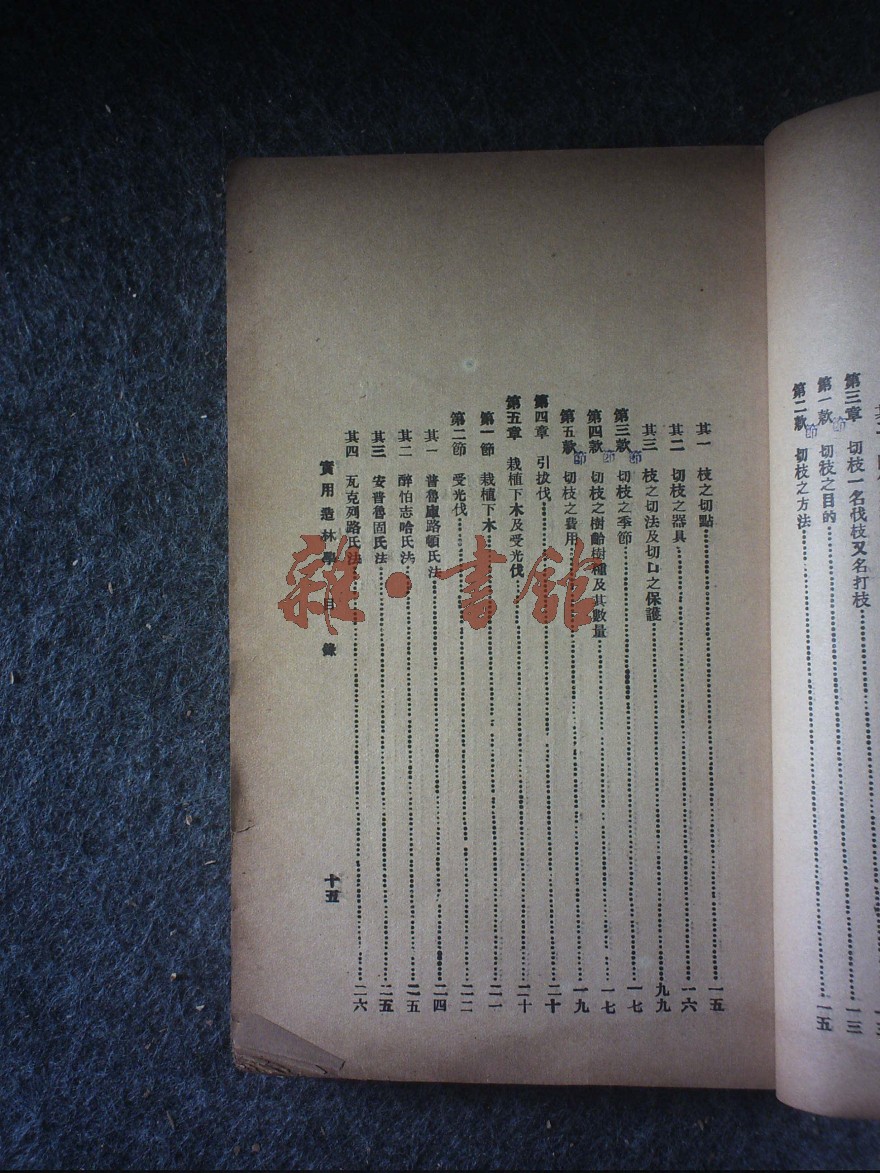 第三章 切枝一名伐枝又名打枝……一三
第一款節 切枝之目的……一五
第二款節 切枝之方法
其一 枝之切點……一五
其二 切枝之器具……一六
其三 枝之切法及切口之保護……九九
第三款節 切枝之季節……一七
第四款節 切枝之樹齡樹種及其數量……一七
第五款節 切枝之費用……一九
第四章 引拔伐……二十
第五章 栽植下木及受光伐……二十
第一節 栽植下木……二一
第二節 受光伐……二二
其一 普魯盧路頓氏法……二四
其二 醉怕志哈氏法……二五
其三 安普魯固氏法……二五
其四 瓦克列路氏法……二六
實用造林學 目錄
十五
雜·書館